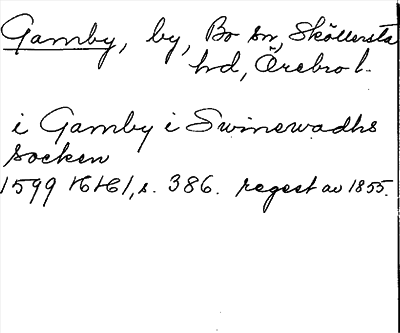 Gamby, by, Bo sn, Sköllersta
hd, Örebro l.
i Gamby i Swinewadhs
socken
1599 HH1, s. 386. regest av 1855.